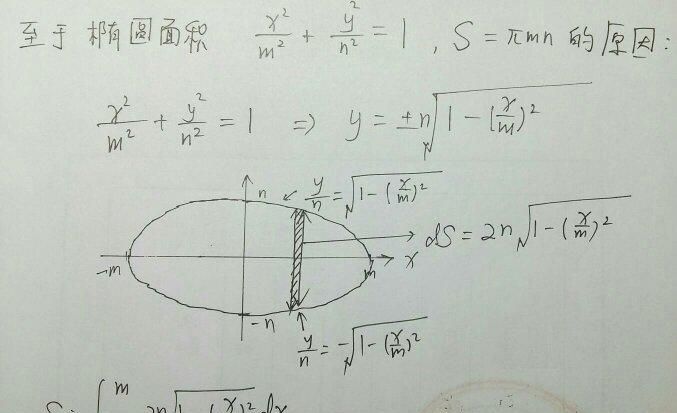 至于椭圆面积 x²/m² + y²/n² = 1 , S = πmn 的原因:
x²/m² + y²/n² = 1 ⇒ y = ±n√(1-(x/m)²)
n
y/n = √(1-(x/m)²)
dS = 2n√(1-(x/m)²)
-m
m
x
-n
y/n = -√(1-(x/m)²)